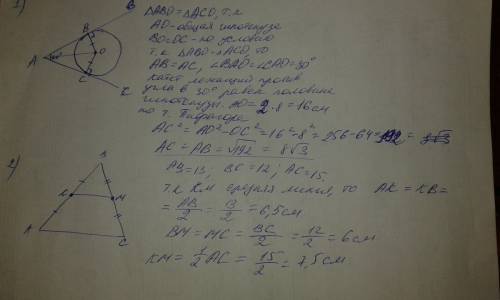 1)
B
ΔABO = ΔACO, т.к
B
AO - общая гипотенуза
A
60°
O
BO=OC - по условию
C
т.к ΔABO = ΔACO, то
AB = AC, ∠BAO = ∠CAO = 30°
C
катет лежащий против
угла в 30° равен половине
гипотенузы. AO = 2·8 = 16см
по т. Пифагора
AC² = AO² - OC² = 16² - 8² = 256 - 64 = 192 = 8√3
AC = AB = √192 = 8√3
2)
B
AB = 13; BC = 12; AC = 15
т.к KM средняя линия, то AK = KB =
K
M
= AB/2 = 13/2 = 6,5см
BM = MC = BC/2 = 12/2 = 6см
A
C
KM = 1/2 AC = 15/2 = 7,5см